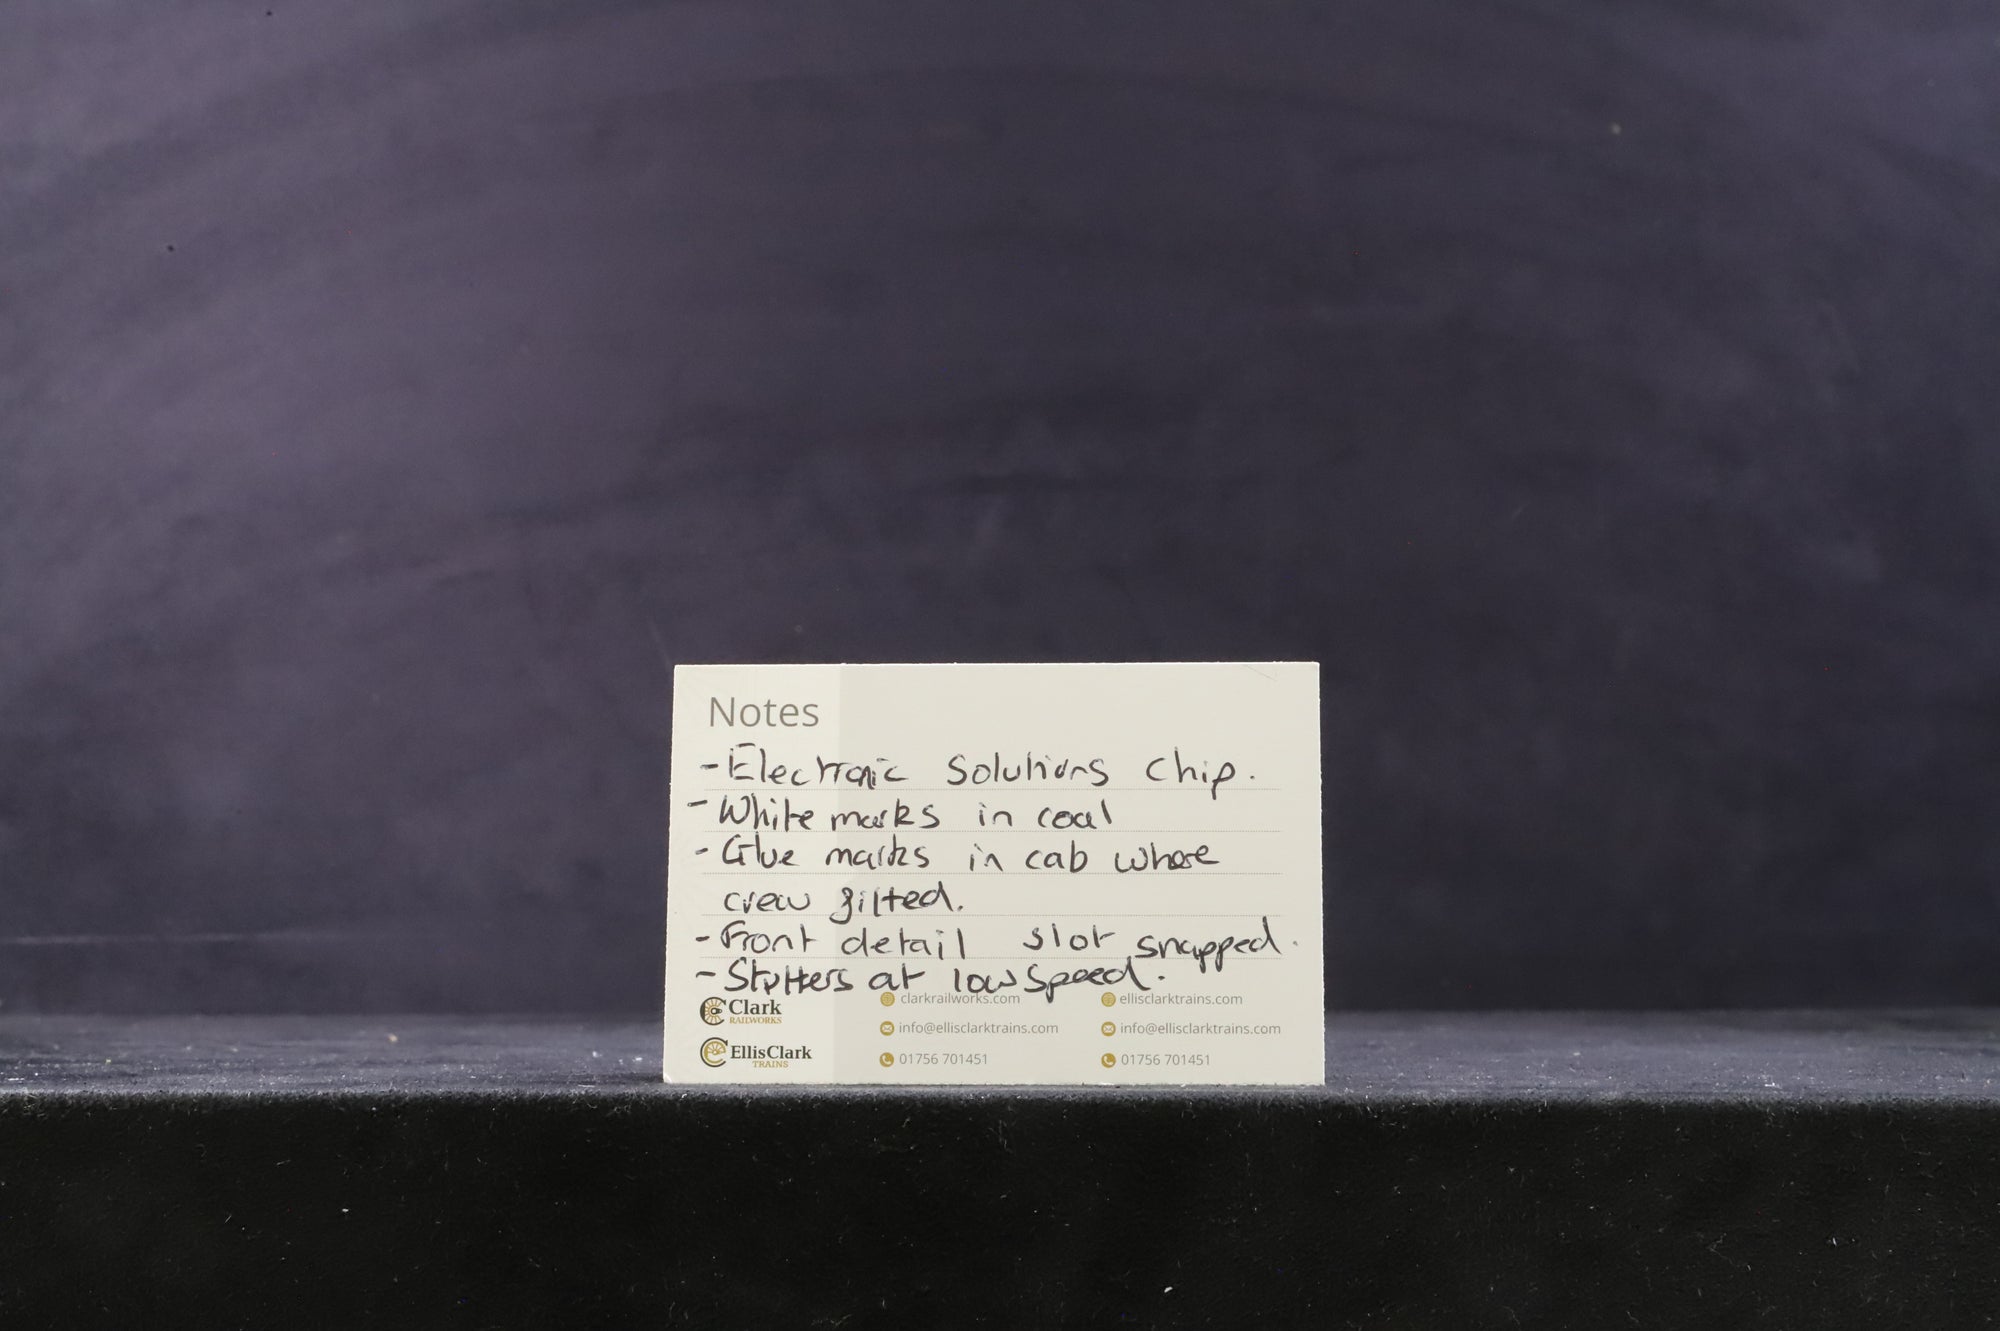 Notes
- Electronic Solutions Chip.
- White marks in coal
- Glue marks in cab where
crew fitted.
- Front detail slot snapped.
- Stutters at low speed.
Clark RAILWORKS
clarkrailworks.com
ellisclarktrains.com
info@ellisclarktrains.com
info@ellisclarktrains.com
EllisClark TRAINS
01756 701451
01756 701451